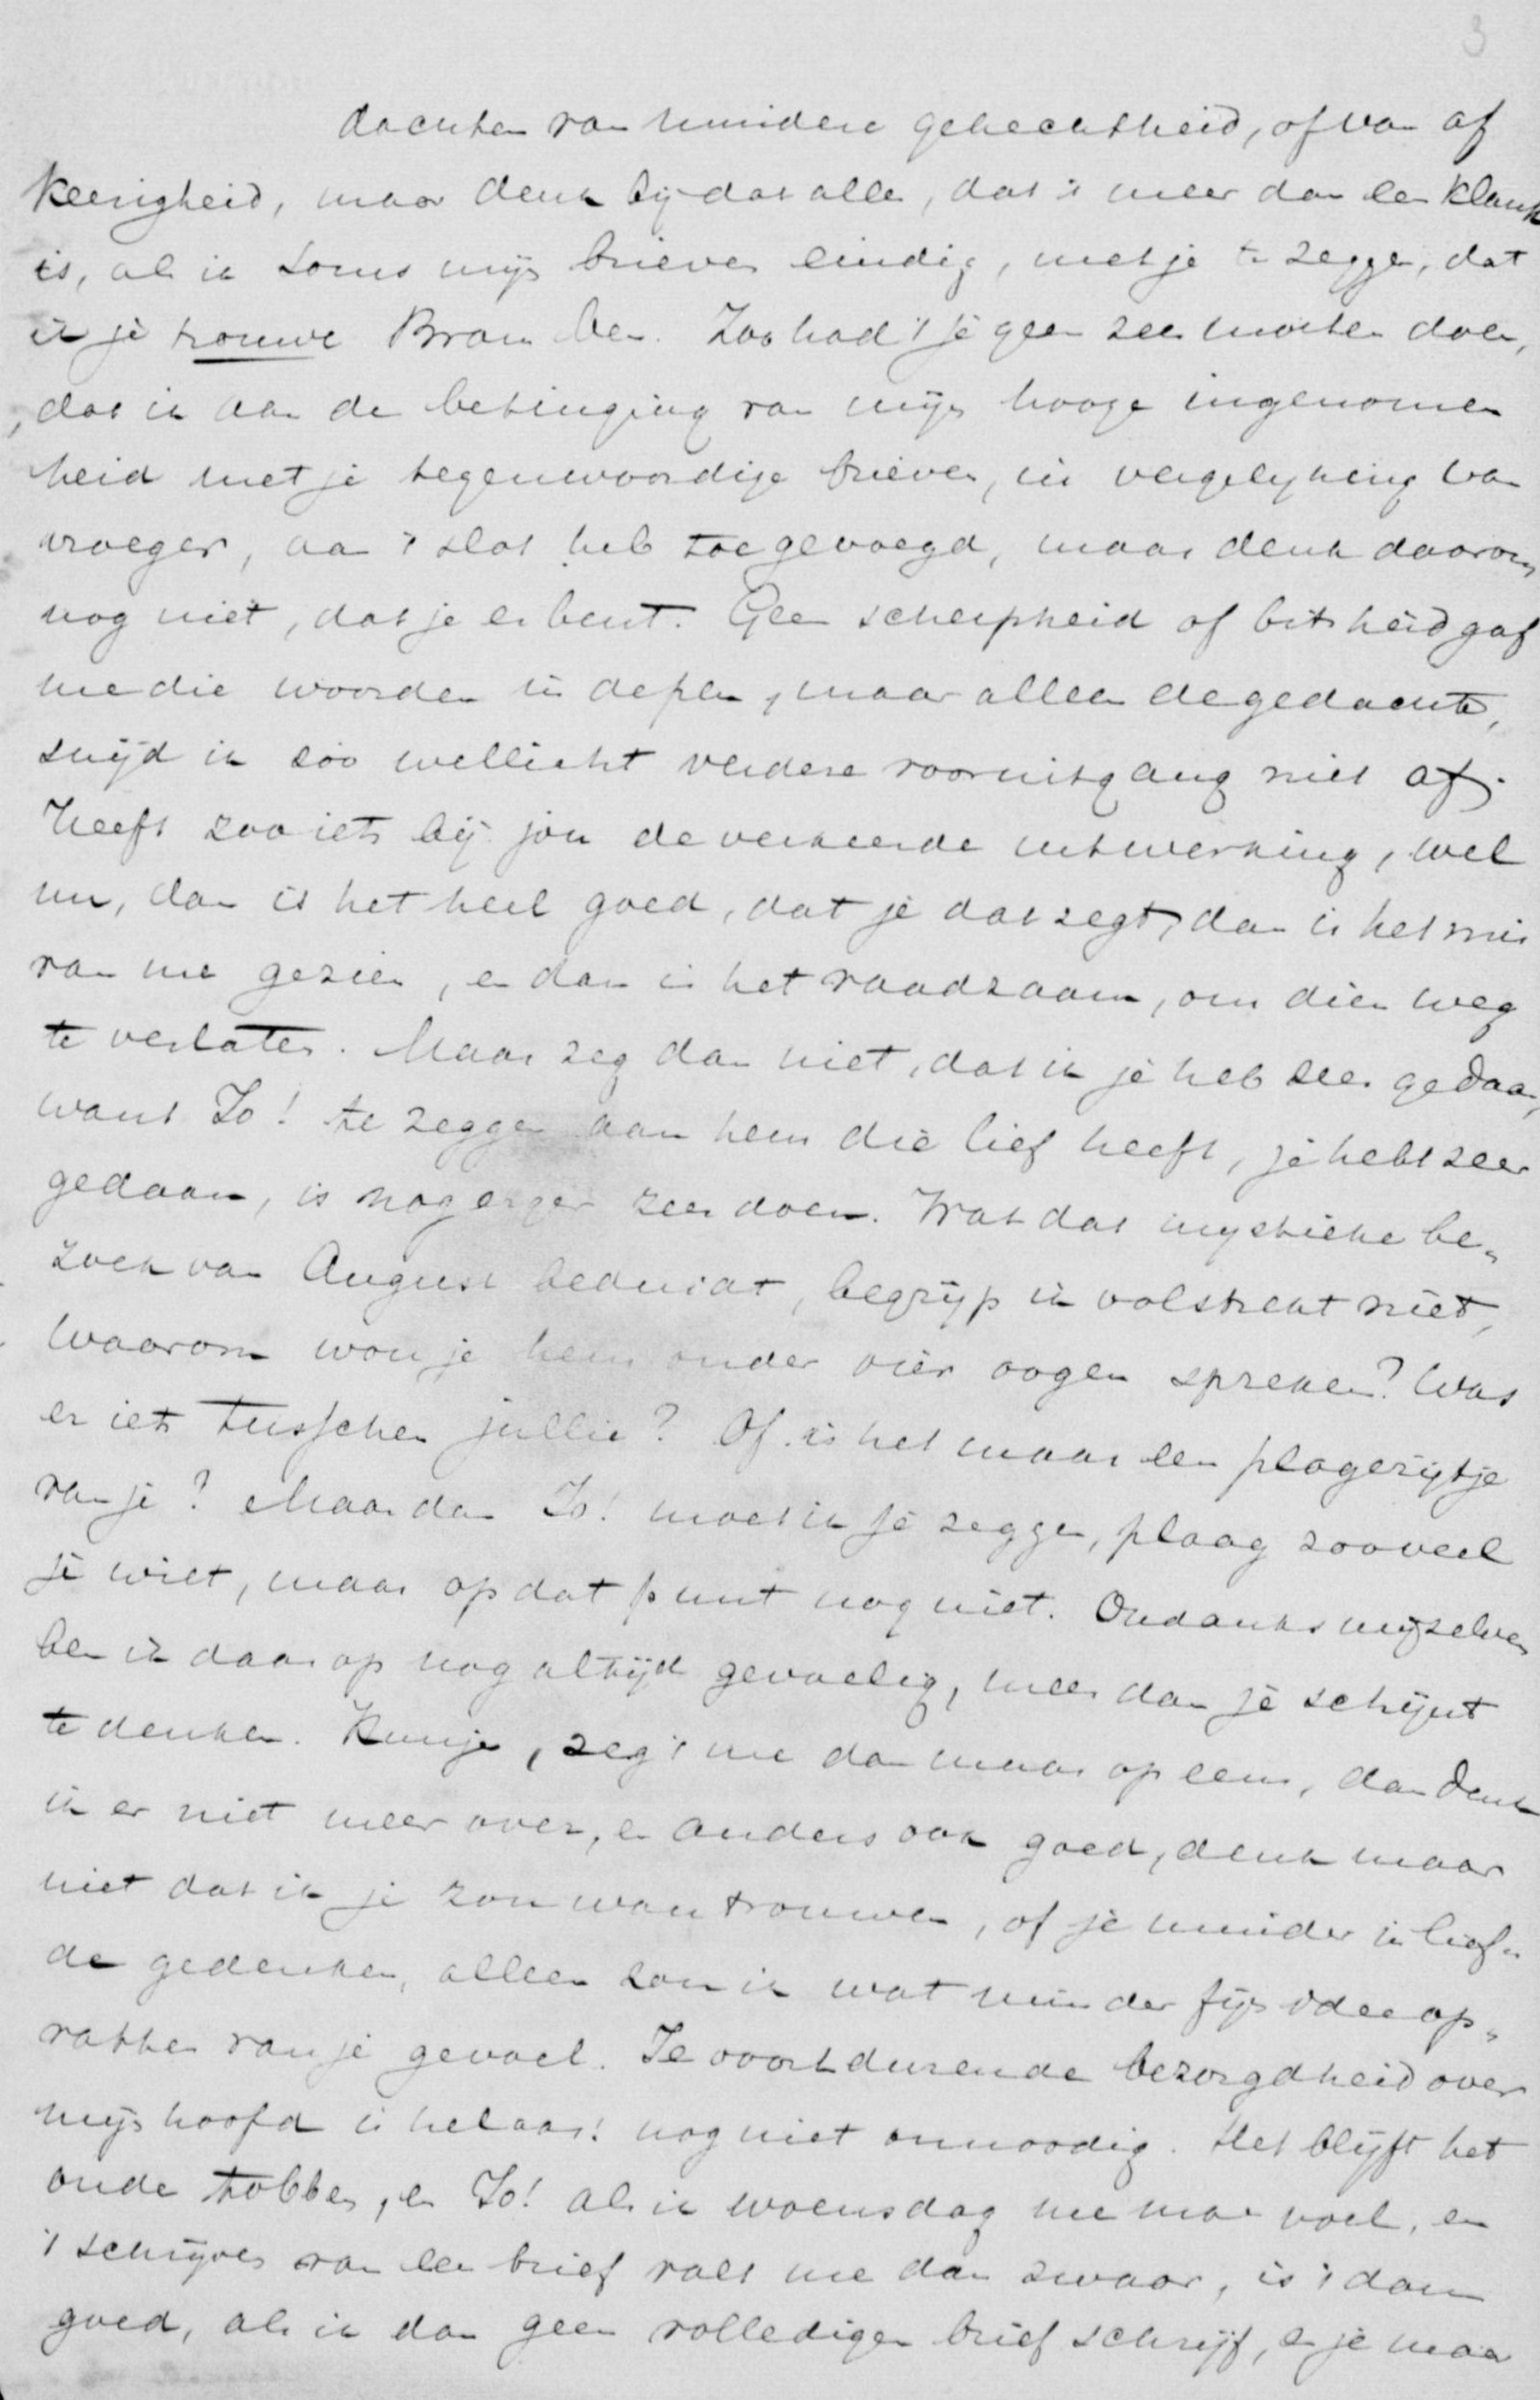 3
dachten van mindere gehechtheid, of van af
keerigheid, maar denk bij dat alles, dat 't meer dan een klank
is, als ik soms mijn brieven eindig, met je te zeggen, dat
ik je trouwe Bram ben. Zoo had 't je geen zeer moeten doen,
dat ik aan de betuiging van mijn hooge ingenomen
heid met je tegenwoordige brieven, in vergelijking van
vroeger, aan 't slot heb toegevoegd, maar denk daarom
nog niet, dat je er bent. Geen scherpheid of bitsheid gaf
me die woorden in de pen, maar alleen de gedachte,
snijd ik zoo wellicht verdere vooruitgang niet af.
Heeft zoo iets bij jou de verkeerde uitwerking, wel
nu, dan is het heel goed, dat je dat zegt, dan is het mis
van me gezien, en dan is het raadzaam, om dien weg
te verlaten. Maar zeg dan niet, dat ik je heb zeer gedaan,
want Jo! te zeggen aan hem die lief heeft, je hebt zeer
gedaan, is nog erger zeer doen. Wat dat mystieke be„
zoek van August beduidt, begrijp ik volstrekt niet,
Waarom wou je hem onder vier oogen spreken? Was
er iets tusschen jullie? Of is het maar een plagerijtje
van je? Maar dan Jo! moet ik je zeggen, plaag zooveel
je wilt, maar op dat punt nog niet. Ondanks mijzelven
ben ik daarop nog altijd gevoelig, meer dan je schijnt
te denken. Kun je, zeg 't me dan maar op eens, dan denk
ik er niet meer over, en anders ook goed, denk maar
niet dat ik je zou wantrouwen, of je minder in lief„
de gedenken, alleen zou ik wat minder fijn idee op„
vatten van je gevoel. Je voortdurende bezorgdheid over
mijn hoofd is helaas! nog niet onnoodig. Het blijft het
oude tobben, en Jo! als ik woensdag me moe voel, en
't schrijven van een brief valt me dan zwaar, is 't dan
goed, als ik dan geen volledigen brief schrijf, en je maar